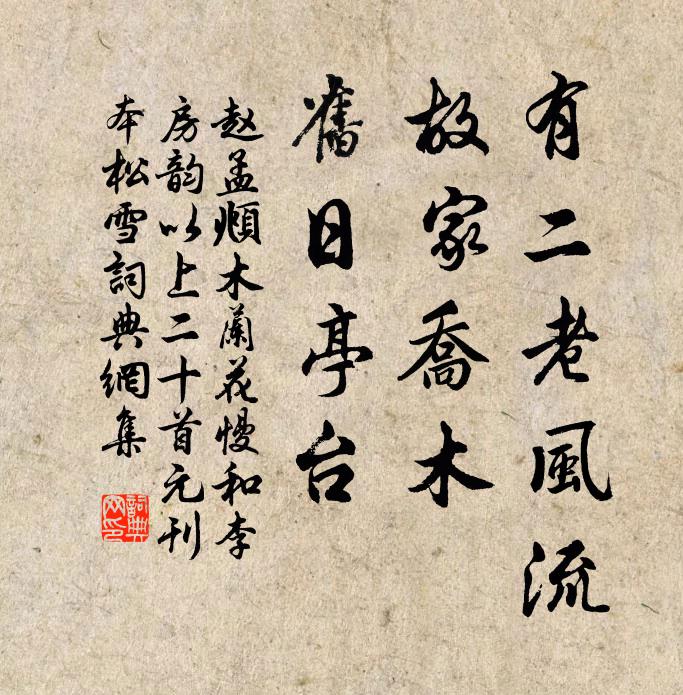 有二老風流
故家喬木
舊日亭台
赵孟頫木蘭花慢和李
房韵以上二十首元刊
本松雪詞典網集
詞典網印